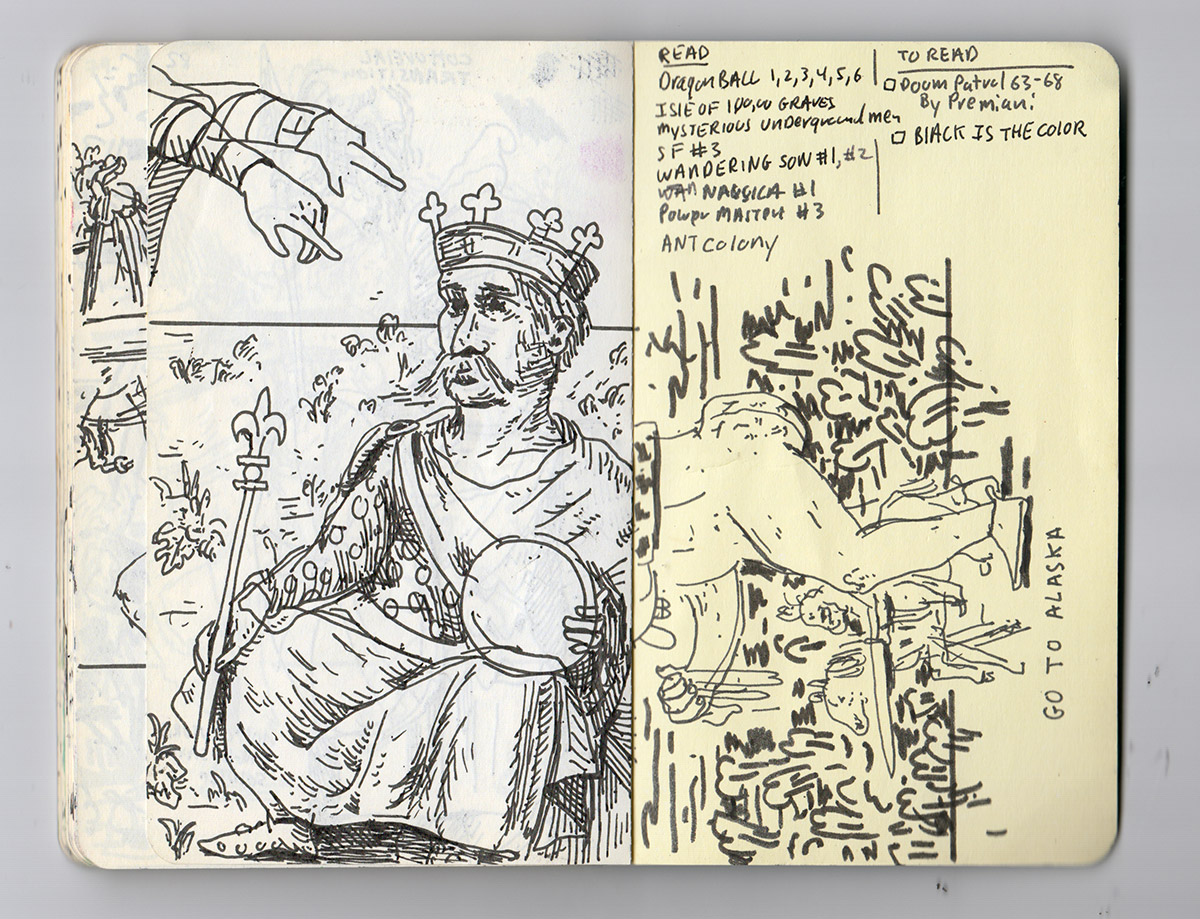 READ
DragonBALL 1,2,3,4,5,6
ISLE OF 100,00 GRAVES
MYSTERIOUS UNDERGROUND MEN
SF #3
WANDERING SON #1, #2
NAUSICA #1
POWER MASTER #3
ANT COLONY
TO READ
Doom Patrol 63-68
By Premiani
BLACK IS THE COLOR
GO TO ALASKA
82
COMOVGIRL
TRANSITION